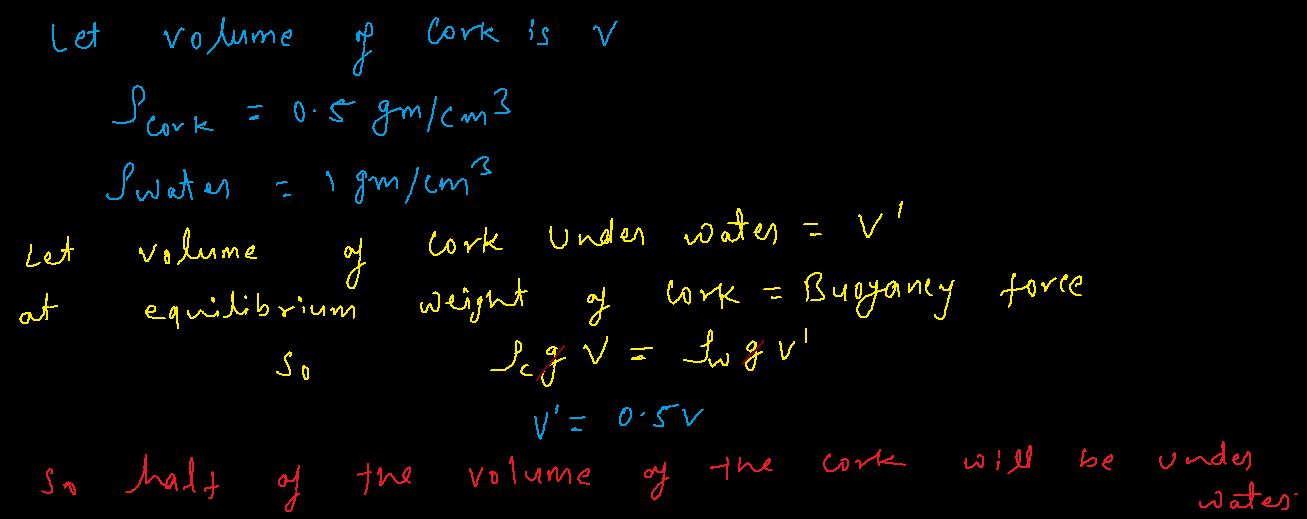 Let volume of cork is V
ρcork = 0.5 gm/cm³
ρwater = 1 gm/cm³
Let volume of cork under water = V'
at equilibrium weight of cork = Buoyancy force
So ρc g V = ρw g V'
V' = 0.5V
So half of the volume of the cork will be under
water.